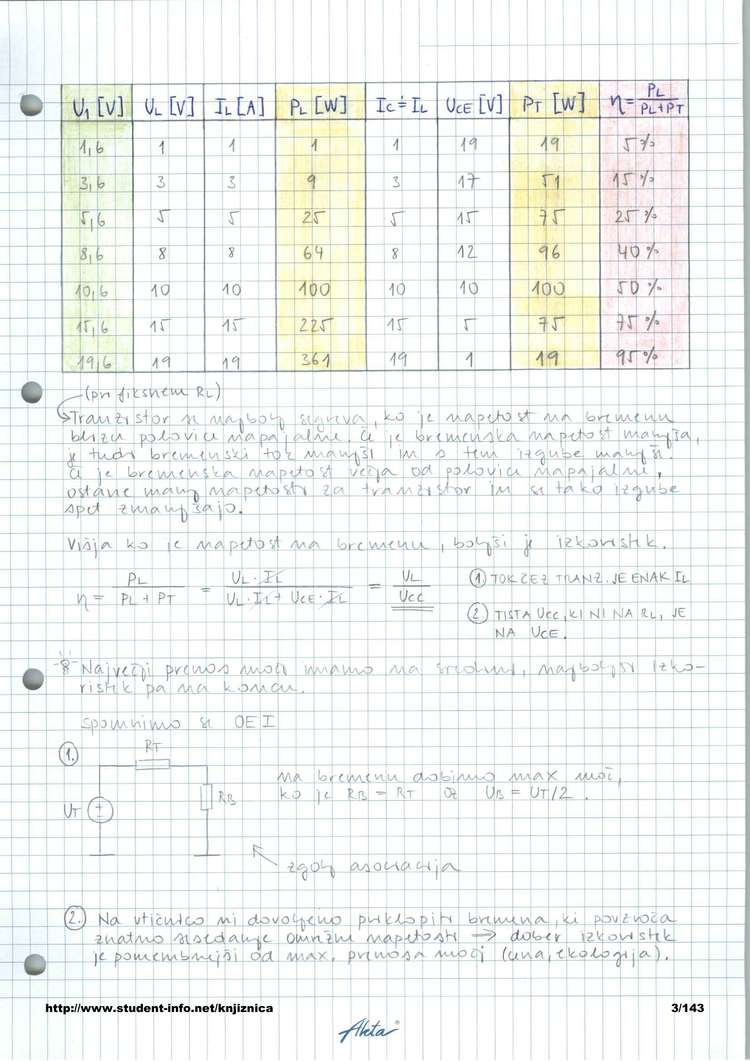 U₁ [V] UL [V] IL [A] PL [W] IC ≐ IL UCE [V] PT [W] η = PL / PL+PT
1,6 1 1 1 1 19 19 5%
3,6 3 3 9 3 17 51 15%
5,6 5 5 25 5 15 75 25%
8,6 8 8 64 8 12 96 40%
10,6 10 10 100 10 10 100 50%
15,6 15 15 225 15 5 75 75%
19,6 19 19 361 19 1 19 95%
(pri fiksnem RL)
Tranzistor se najbolj segreva, ko je napetost na bremenu
blizu polovice napajalne. Če je bremenska napetost manjša,
je tudi bremenski tok manjši in s tem izgube manjši.
Če je bremenska napetost večja od polovice napajalne,
ostane manj napetosti za tranzistor in se tako izgube
spet zmanjšajo.
Višja ko je napetost na bremenu, boljši je izkoristek.
η = PL / PL + PT = UL·IL / UL·IL + UCE·IL = UL / UCC
① TOK ČEZ TRANZ. JE ENAK IL
② TISTA UCC, KI NI NA RL, JE
NA UCE.
Največji prenos moči imamo na sredini, najboljši izko-
ristek pa na koncu.
Spomnimo se OE I
1.
RT
UT
RB
Na bremenu dobimo max moč,
ko je RB = RT oz UB = UT/2.
zgolj asociacija
2. Na vtičnico ni dovoljeno priklopiti bremena, ki povzroča
znatno sesedanje omrežne napetosti → dober izkoristek
je pomembnejši od max. prenosa moči (cena, ekologija).
http://www.student-info.net/knjiznica
3/143
Akta